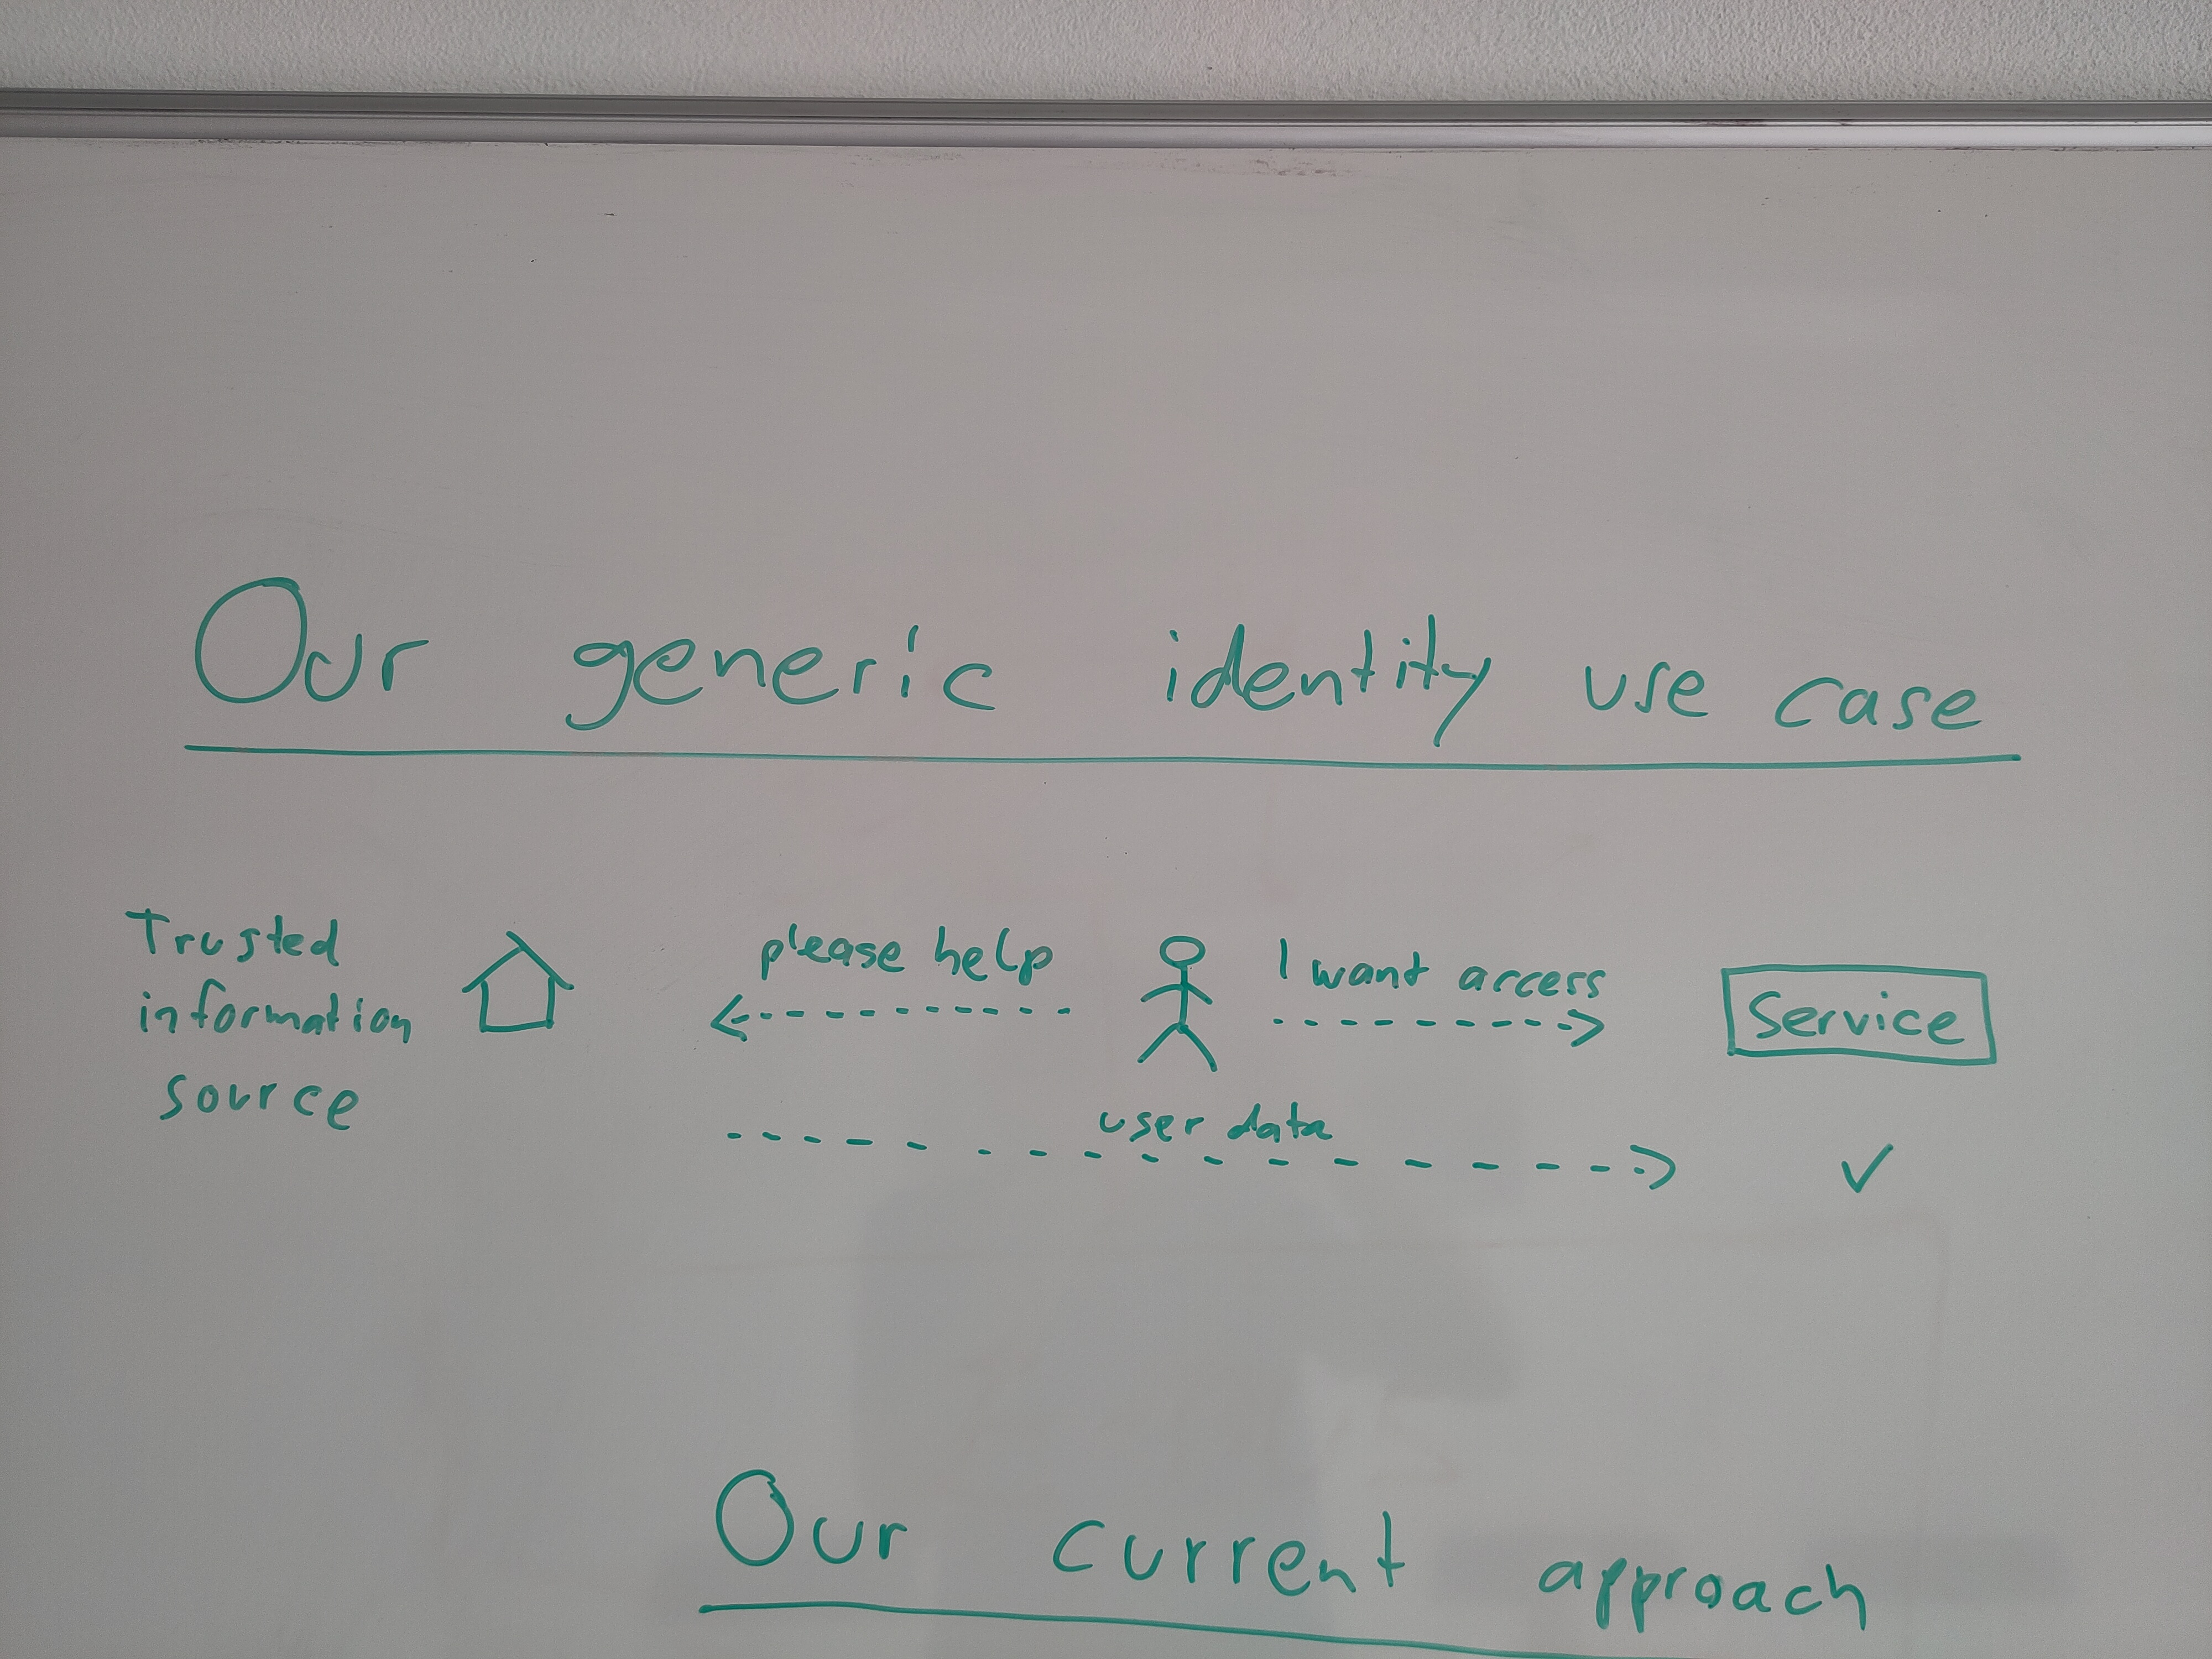 Our generic identity use case
Trusted
information
source
please help
I want access
Service
user data
Our current approach